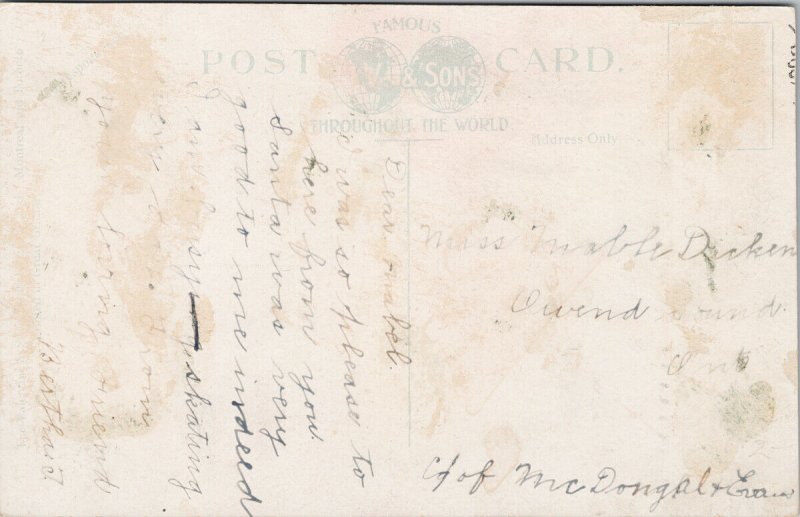 FAMOUS
POST CARD.
& SONS
THROUGHOUT THE WORLD
Address Only
Dear Mabel.
I was so please to
here from you.
Santa was very
good to me indeed
I am busy skating
very
from
your loving friend
Bertha J
Miss Mable Dicken
Owend Sound
Ont
C/of McDongal & Evans